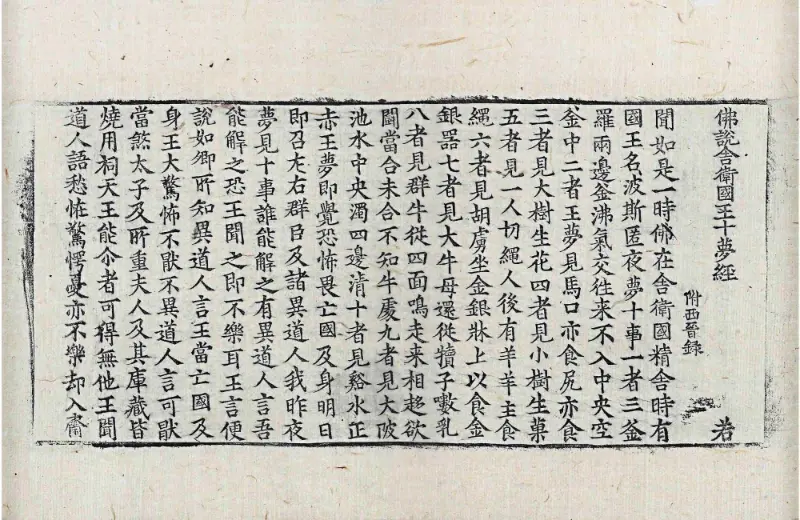 佛說舍衛國王十夢經
附西晉錄
若
聞如是一時佛在舍衛國精舍時有
國王名波斯匿夜夢十事一者三釜
羅兩邊釜沸氣交往来不入中央空
釜中二者王夢見馬口亦食尻亦食
三者見大樹生花四者見小樹生菓
五者見一人切繩人後有羊羊主食
繩六者見胡虜坐金銀牀上以食金
銀器七者見大牛母還從犢子嗽乳
八者見群牛從四面鳴走来相趁欲
鬪當合未合不知牛處九者見大陂
池水中央濁四邊清十者見谿水正
赤王夢即覺恐怖畏亡國及身明日
即召左右群臣及諸異道人我昨夜
夢見十事誰能解之有異道人言吾
能解之恐王聞之即不樂耳王言便
說如卿所知異道人言王當亡國及
身王大驚怖不猒不異道人言可猒
當煞太子及所重夫人及其庫藏皆
燒用祠天王能尒者可得無他王聞
道人語愁怖驚愕憂亦不樂却入齋